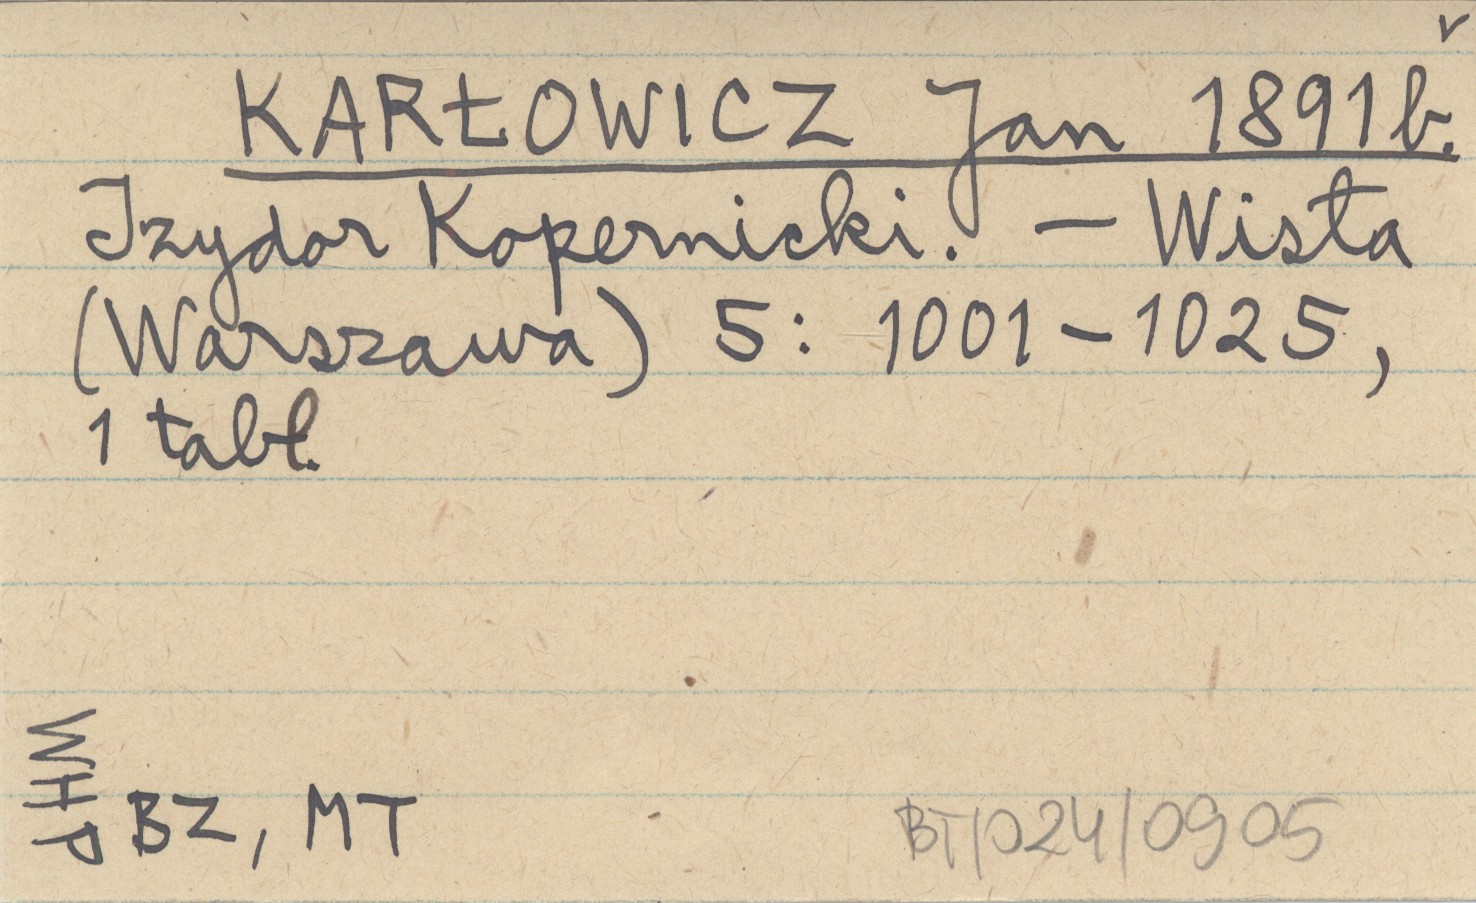 v
KARŁOWICZ Jan 1891b.
Izydor Kopernicki. — Wisła
(Warszawa) 5: 1001-1025,
1 tabl.
WHP
BZ, MT
BT/024/0905